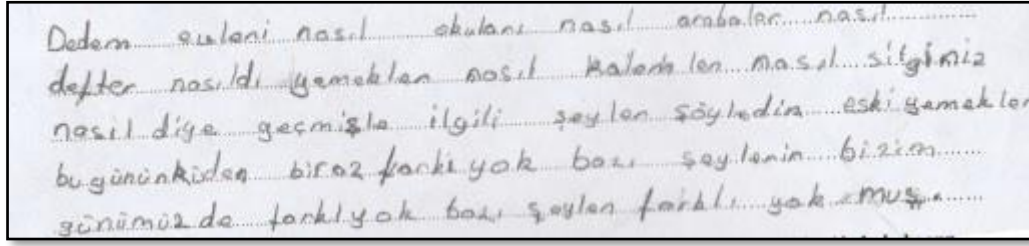 Dedem evleni nasıl okulanı nasıl arabalar nasıl
defter nasıldı yemeklen nasıl kalemlen nasıl silgimiz
nasıl diye geçmişle ilgili şeylen söyledin eski yemekler
bugününkiden biraz farkı yok bazı şeylenin bizim
günümüzde farklyok bazı şeylen farklı yok muş.